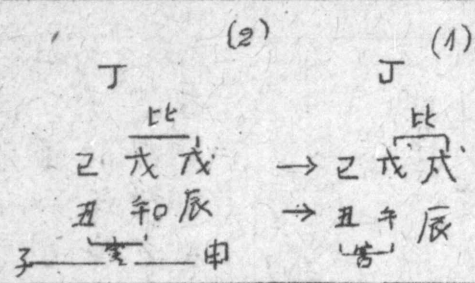 (2) (1)
丁 丁
比 比
己 戊 戊 → 己 戊 戊
丑 午 辰 → 丑 午 辰
害 害
子 申